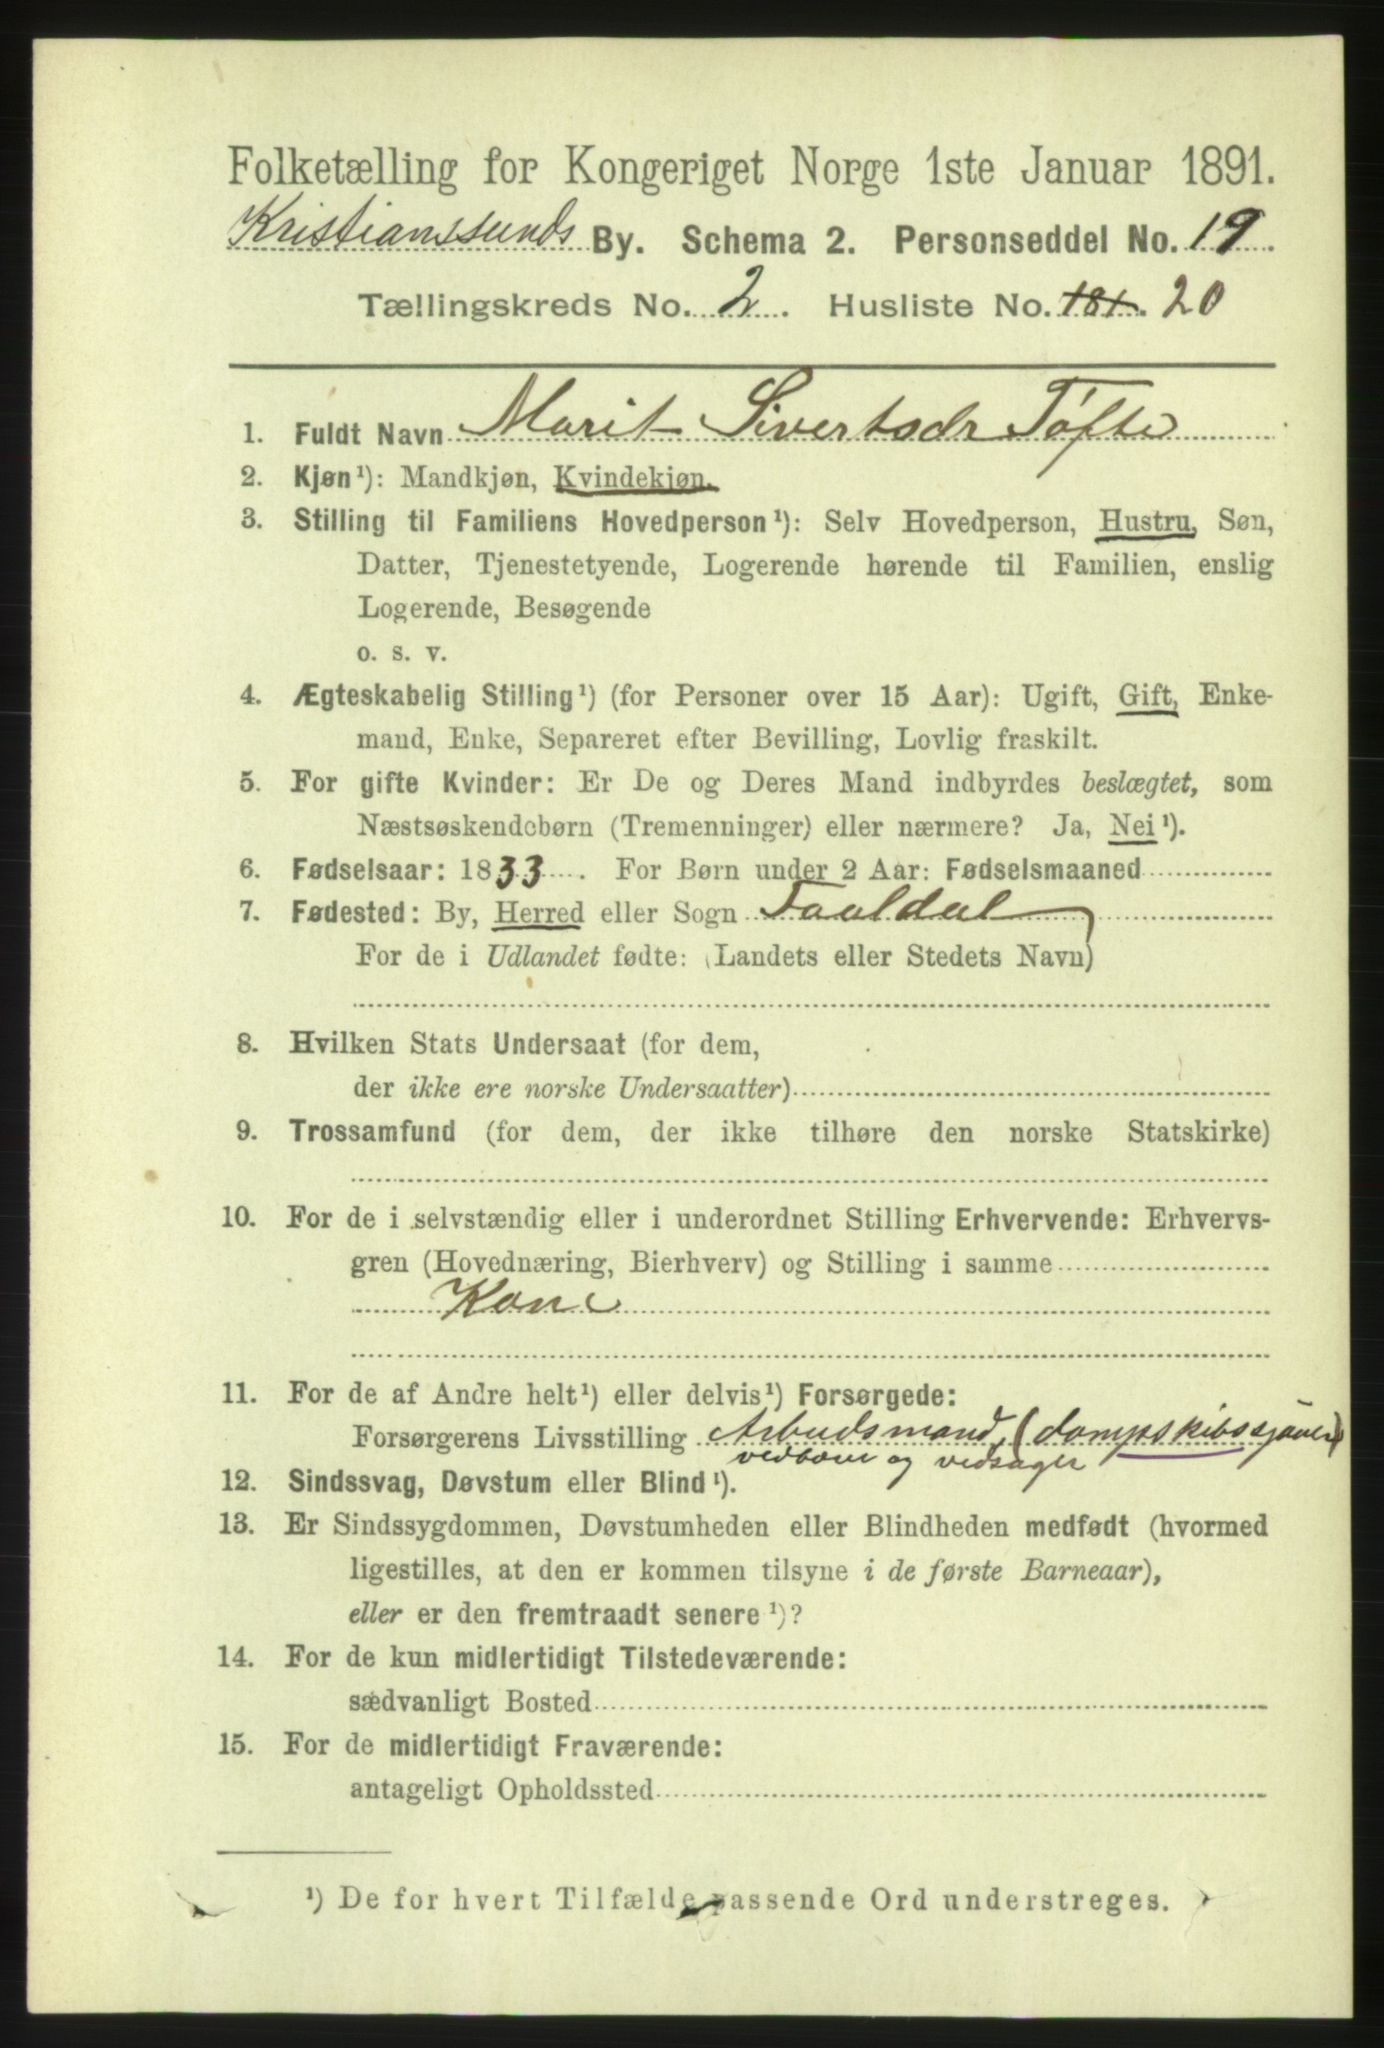 Folketælling for Kongeriget Norge 1ste Januar 1891.
Kristianssunds By. Schema 2. Personseddel No. 19.
Tællingskreds No. 2. Husliste No. 181. 20
1. Fuldt Navn Marit Sivertsdr Tøfte
2. Kjøn¹): Mandkjøn, Kvindekjøn.
3. Stilling til Familiens Hovedperson¹): Selv Hovedperson, Hustru, Søn,
Datter, Tjenestetyende, Logerende hørende til Familien, enslig
Logerende, Besøgende
o. s. v.
4. Ægteskabelig Stilling¹) (for Personer over 15 Aar): Ugift, Gift, Enke-
mand, Enke, Separeret efter Bevilling, Lovlig fraskilt.
5. For gifte Kvinder: Er De og Deres Mand indbyrdes beslægtet, som
Næstsøskendebørn (Tremenninger) eller nærmere? Ja, Nei¹).
6. Fødselsaar: 1833. For Børn under 2 Aar: Fødselsmaaned
7. Fødested: By, Herred eller Sogn
For de i Udlandet fødte: (Landets eller Stedets Navn)
8. Hvilken Stats Undersaat (for dem,
der ikke ere norske Undersaatter)
9. Trossamfund (for dem, der ikke tilhøre den norske Statskirke)
10. For de i selvstændig eller i underordnet Stilling Erhvervende: Erhvervs-
gren (Hovednæring, Bierhverv) og Stilling i samme
Kone
11. For de af Andre helt¹) eller delvis¹) Forsørgede:
Forsørgerens Livsstilling Arbudsmand, (dampskibssjauer)
og vedsager
12. Sindssvag, Døvstum eller Blind¹).
13. Er Sindssygdommen, Døvstumheden eller Blindheden medfødt (hvormed
ligestilles, at den er kommen tilsyne i de første Barneaar),
eller er den fremtraadt senere¹)?
14. For de kun midlertidigt Tilstedeværende:
sædvanligt Bosted
15. For de midlertidigt Fraværende:
antageligt Opholdssted
¹) De for hvert Tilfælde passende Ord understreges.